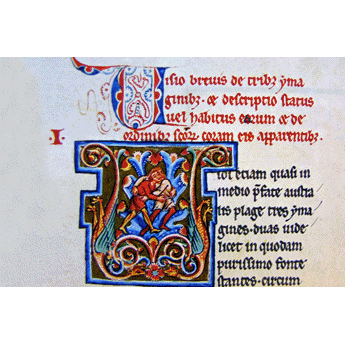 Visio breuis de tribꝫ yma
ginibꝫ · & descriptio status
uel habitus earum & de
I · ordinibꝫ scoꝝ coram eis apparentibꝫ.
Vidi etiam quasi in
medio p̄fate austra
lis plage tres yma
gines · duas uide
licet in quodam
purissimo fonte
stantes · circum